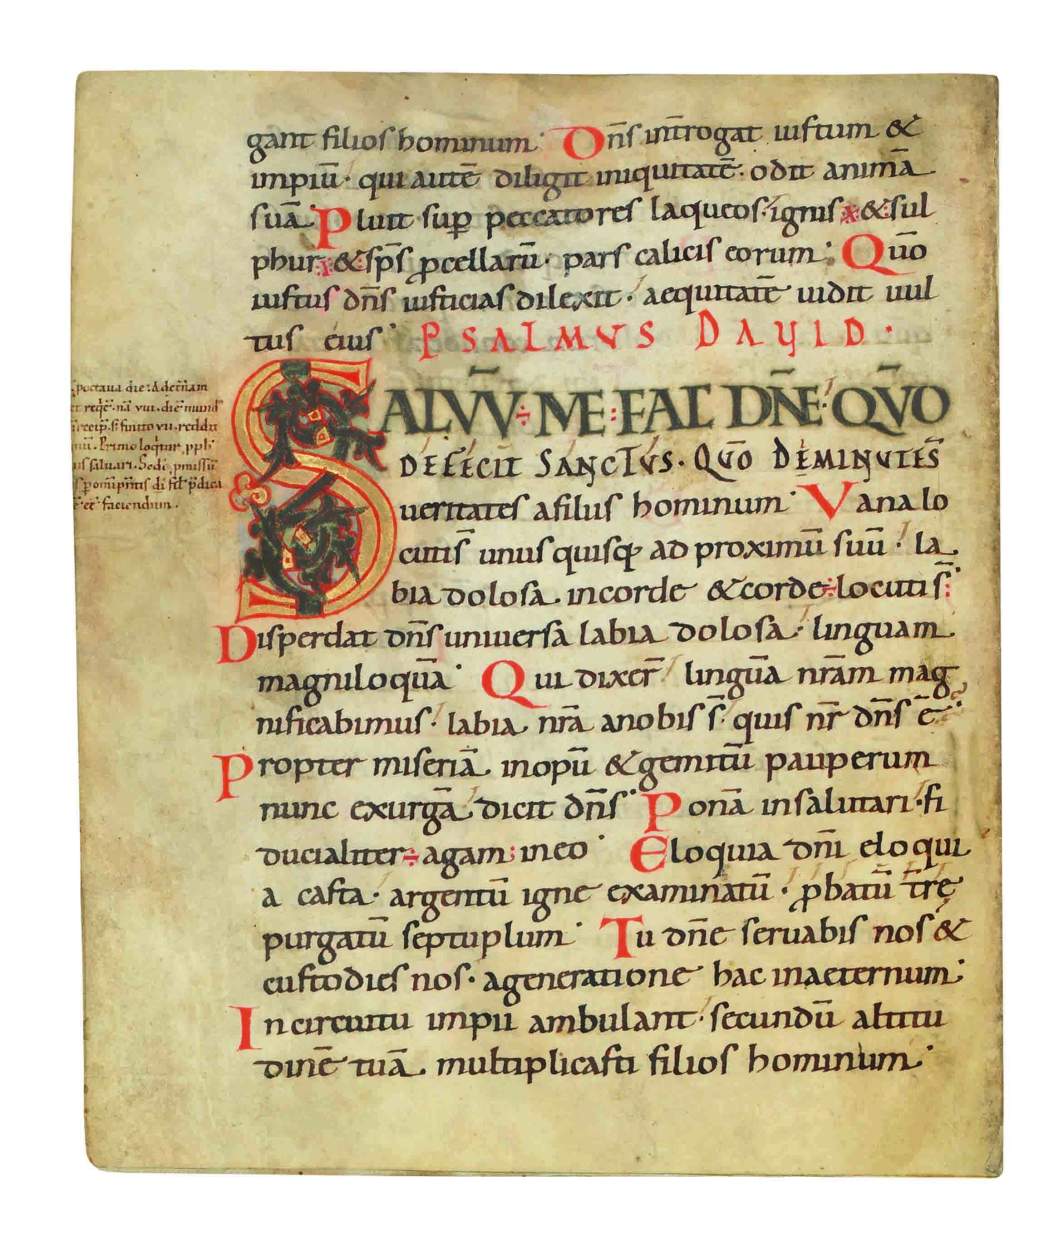 gant filios hominum· Dn̄s int̄rogat iustum &
impiū· qui autē diligit iniquitatē· odit animā
suā· Pluit sup̱ peccatores laqueos· ignis & sul
phur & sp̄s ꝓcellarū· pars calicis eorum· Quō
iustus dn̄s iusticias dilexit· aequitatē uidit uul
tus eius· PSALMVS DAVID·
SALVV̄ ME FAC DN̄E QVŌ
DEFECIT SANCTVS· QUŌ DEMINUTE S̄
ueritates afilius hominum· Vana lo
cuti s̄ unus quisq; ad proximū suū· la
bia dolosa incorde & corde locuti s̄·
Disperdat dn̄s uniuersa labia dolosa· linguam
magniloquā· Qui dixer̄ linguā nr̄am mag
nificabimus· labia nr̄a anobis s̄· quis nr̄ dn̄s ē·
Propter miseriā inopū & gemitū pauperum
nunc exurgā dicit dn̄s· Ponā insalutari· fi
ducialiter agam ineo· Eloquia dn̄i eloqui
a casta· argentū igne examinatū· ꝓbatū t̄rę
purgatū septuplum· Tu dn̄e seruabis nos &
custodies nos· ageneratione hac inaeternum·
Incircuitu impii ambulant· secundū altitu
dinē tuā multiplicasti filios hominum·
octaua die· Ad
nā viii· diē
finito vii· reddit
Primo loqitur
saluari· Sed
faciendum·